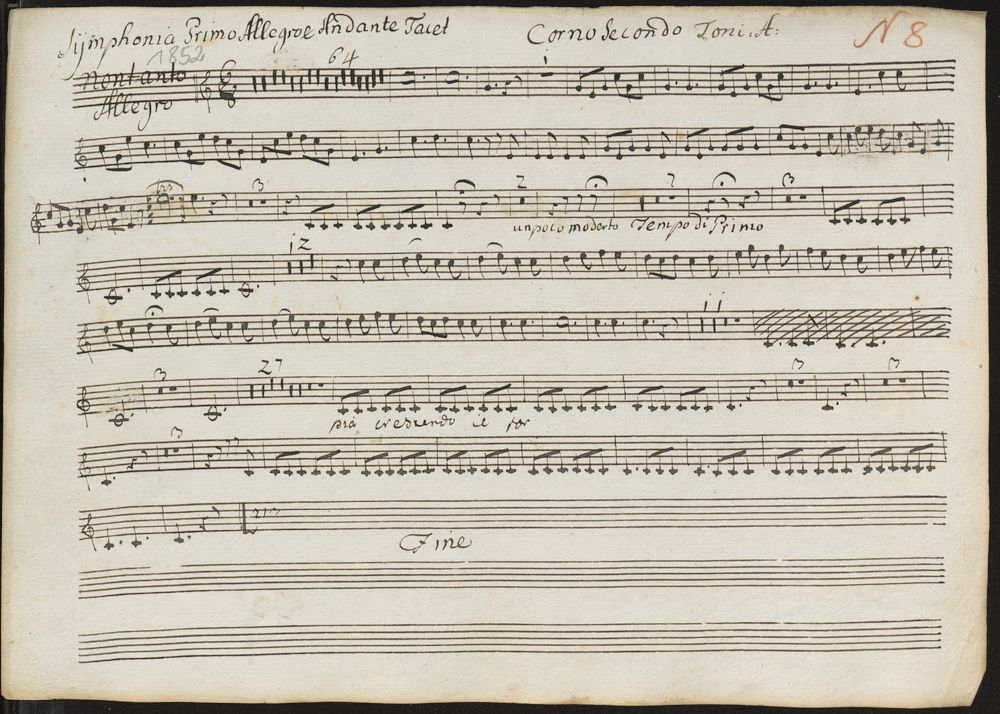 Symphonia Primo Allegro e Andante Tacet Corno Secondo Toni. A: N 8
1852
Non tanto 64
Allegro
1
trs 3 2 7 3
un poco moderto Tempo di Primo
12
11
3 27 3 3
pia crescendo il for
3
213
Fine